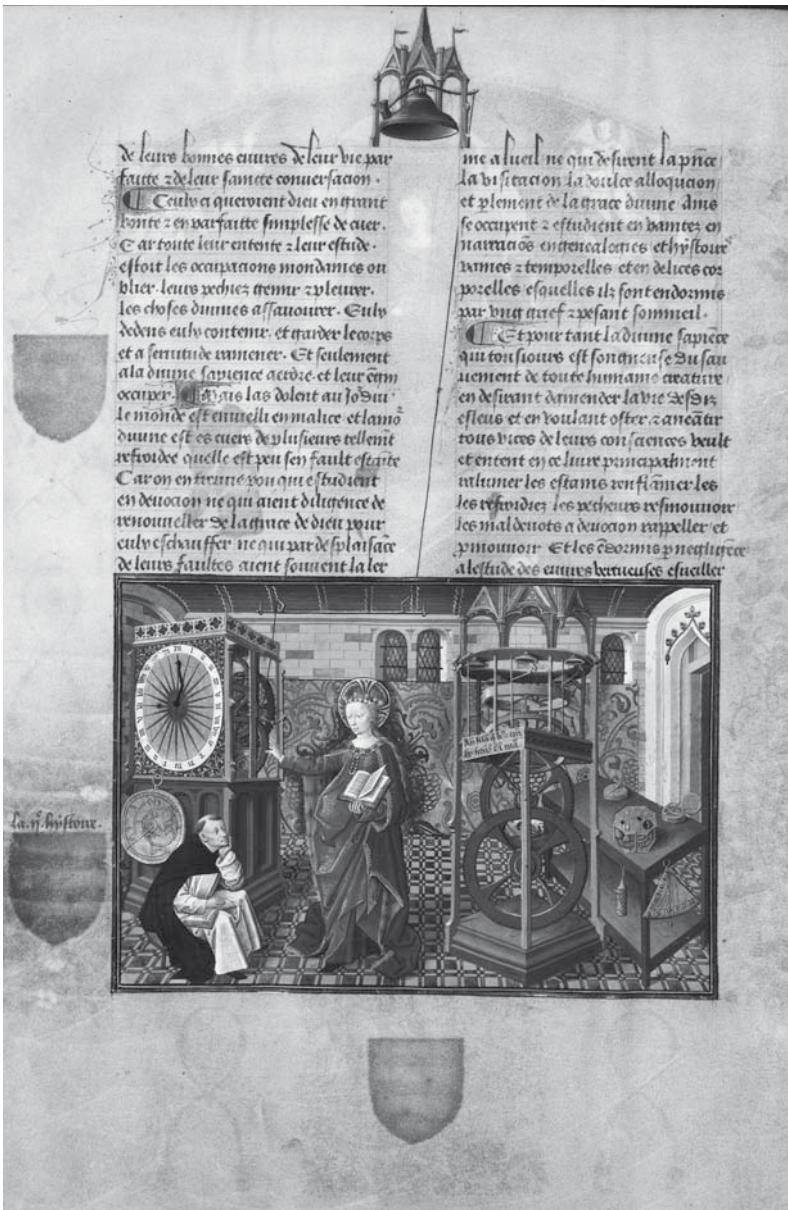 de leurs bonnes euures de leur vie par
faitte ⁊ de leur saincte conuersacion .
Ceulx ci queroient dieu en grant
bonte ⁊ en parfaitte simplesse de cuer .
Car toute leur entente ⁊ leur estude .
estoit les occupacions mondaines ou
blier . leurs pechiez gemir ⁊ pleurer .
les choses diuines assauourer . Eulx
dedens eulx contenir . et garder le corps
et a seruitude ramener . Et seulement
a la diuine sapience actdre . et leur
occuper . Mais las dolent au
le monde est enuieilli en malice . et lamoʳ
diuine est es cuers de plusieurs tellemt̄
refroidee quelle est peu sen fault estainte
Car on en treuue pou qui estudient
en deuocion ne qui aient diligence de
renouueller de la grace de dieu pour
eulx eschauffer ne qui par desplaisāce
de leurs faultes aient souuent la ler
me a lueil ne qui desirent la pñce
la visitacion la doulce allogucion
et plement de la grace diuine Ains
se occupent ⁊ estudient en vanitez en
narraciōs en genealogies et hystoires
vaines ⁊ temporelles et en delices cor
porelles esquelles ilz sont endormis
par vng grief ⁊ pesant sommeil .
Et pour tant la diuine sapiēce
qui tousiours est songneuse du sau
uement de toute humaine creature
en desirant damender la vie desdiz
esleus et en voulant oster . ⁊ aneātir
tous vices de leurs consciences veult
et entent en ce liure principalment
ralumer les estains renflāmer les
les refroidiez les pecheurs resmouuoir
les mal deuots a deuocion rappeller et
pmouuoir Et les ēdormis p negligēce
a lestude des euures vertueuses esueiller
la .iiᵉ. hystoire .